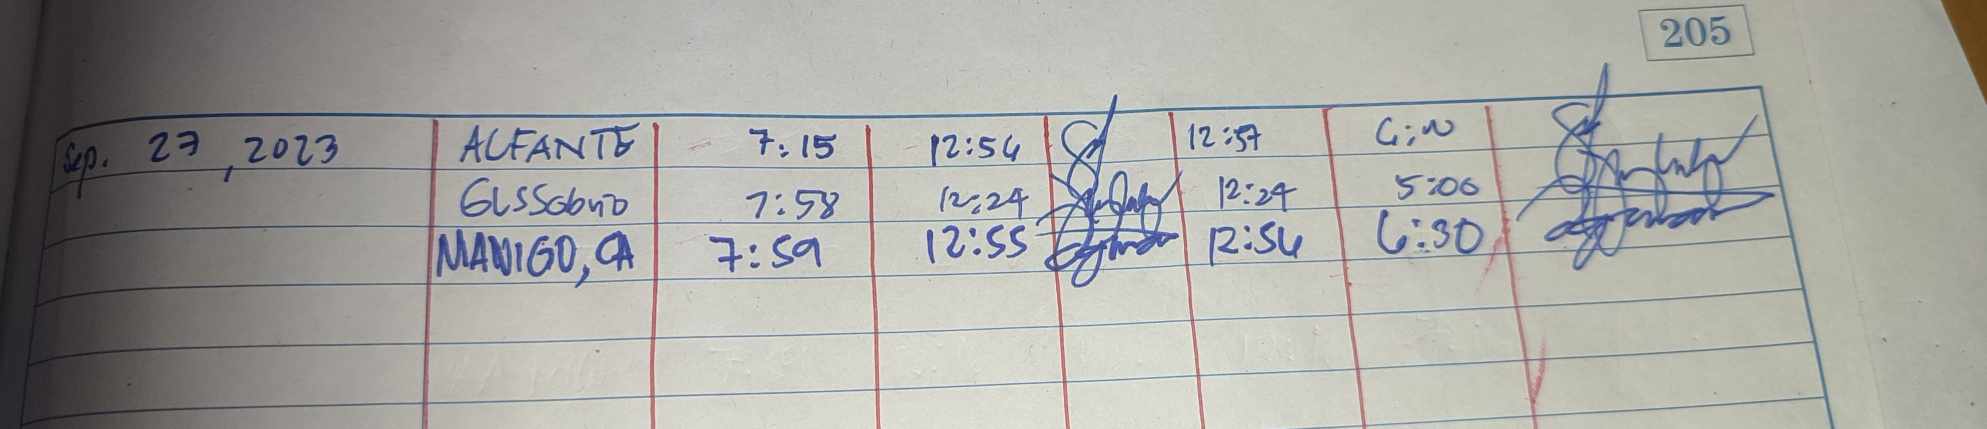 205
Sep. 27, 2023 ALFANTE 7:15 12:54 12:57
7:58 12:24 12:24 5:00
MANIGO, CA 7:59 12:55 12:56 6:30